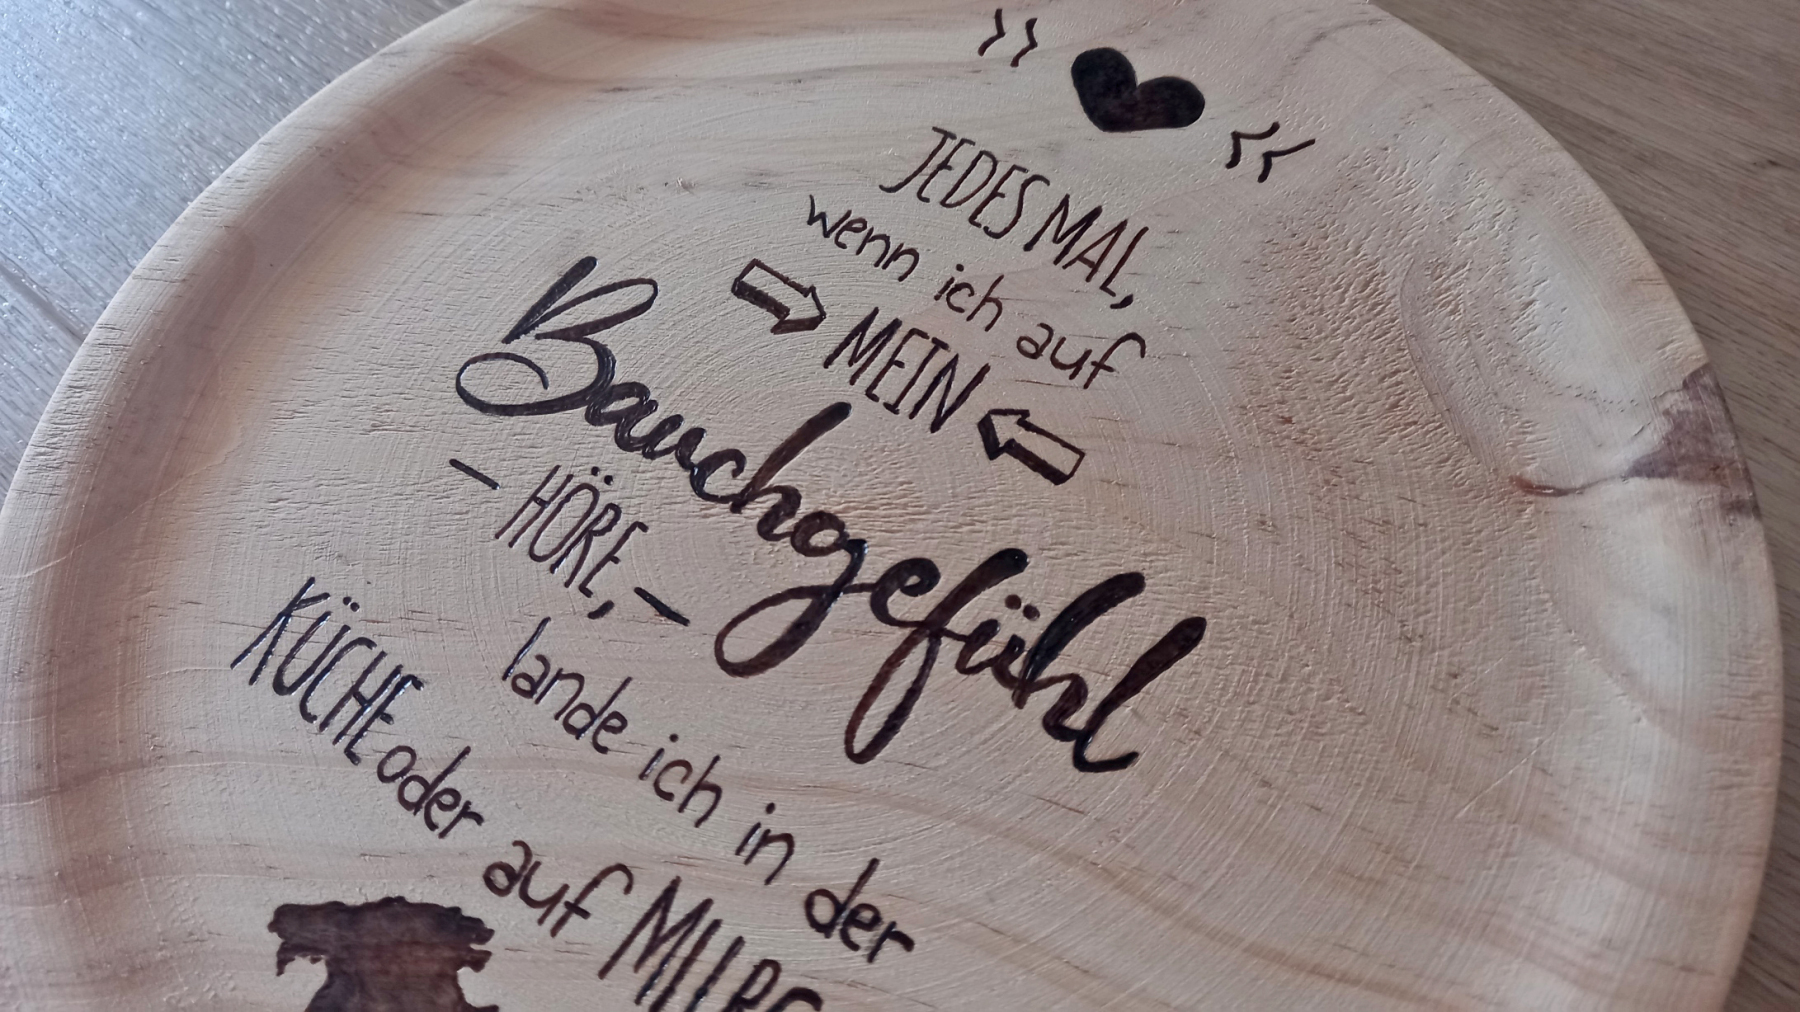 JEDES MAL,
wenn ich auf
MEIN
Bauchgefühl
– HÖRE, –
lande ich in der
KÜCHE oder auf